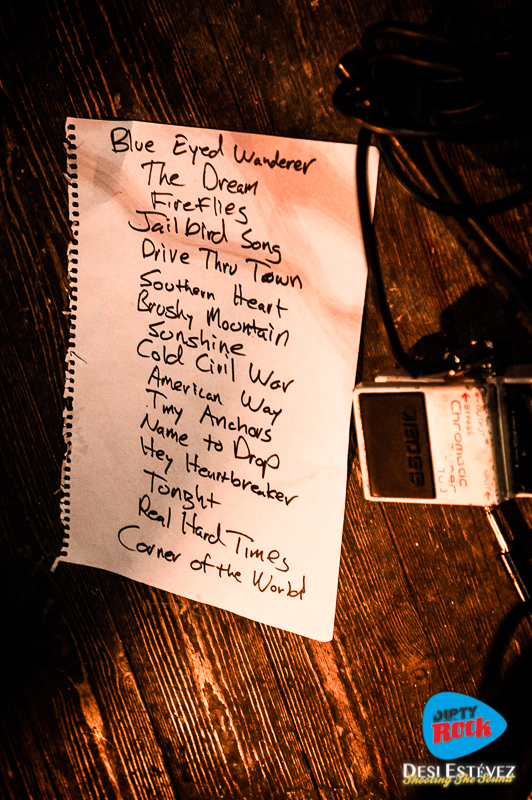 Blue Eyed Wanderer
The Dream
Fireflies
Jailbird Song
Drive Thru Town
Southern Heart
Brushy Mountain
Sunshine
Cold Civil War
American Way
Tiny Anchors
Name to Drop
Hey Heartbreaker
Tonight
Real Hard Times
Corner of the World
BOSS
Chromatic
BYPASS
DIRTY
Rock
DESI ESTÉVEZ
Shooting The Sound